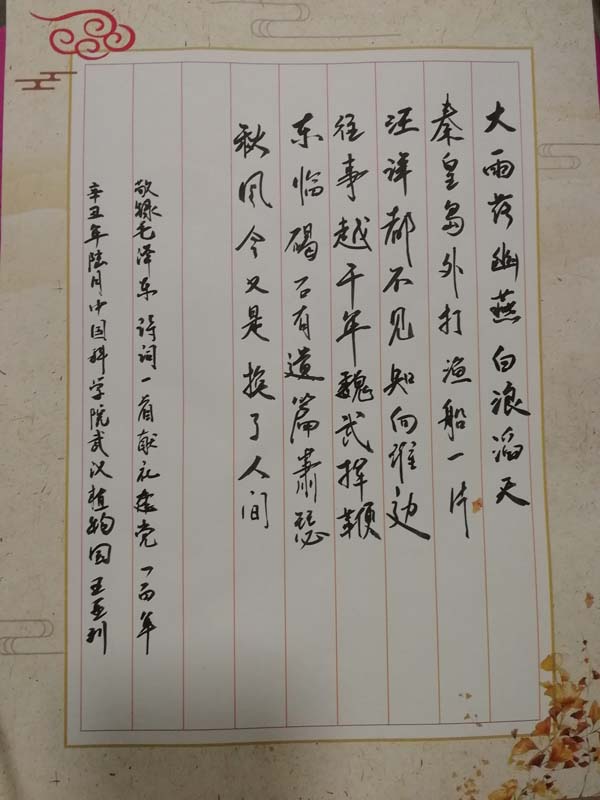 大雨落幽燕白浪滔天
秦皇岛外打渔船一片
汪洋都不见知向谁边
往事越千年魏武挥鞭
东临碣石有遗篇萧瑟
秋风今又是换了人间
敬録毛泽东诗词一首献礼建党一百年
辛丑年陆月中国科学院武汉植物园王亚